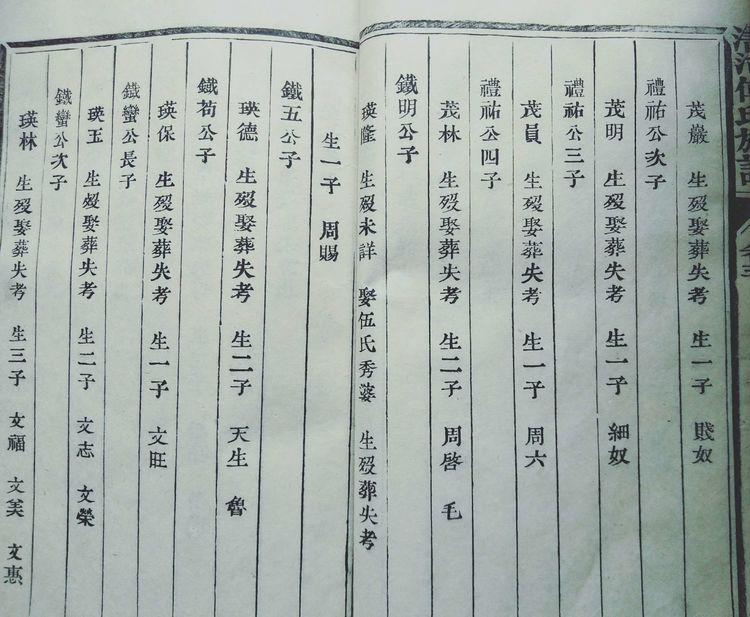 茂巖 生歿娶葬失考 生一子 賤奴
禮祐公次子
茂明 生歿娶葬失考 生一子 細奴
禮祐公三子
茂員 生歿娶葬失考 生一子 周六
禮祐公四子
茂林 生歿娶葬失考 生二子 周啓 毛
鐵明公子
瑛隆 生歿未詳 娶伍氏秀婆 生歿葬失考
生一子 周賜
鐵五公子
瑛德 生歿娶葬失考 生二子 天生 魯
鐵茍公子
瑛保 生歿娶葬失考 生一子 文旺
鐵蠻公長子
瑛玉 生歿娶葬失考 生二子 文志 文榮
鐵蠻公次子
瑛林 生歿娶葬失考 生三子 文福 文美 文惠